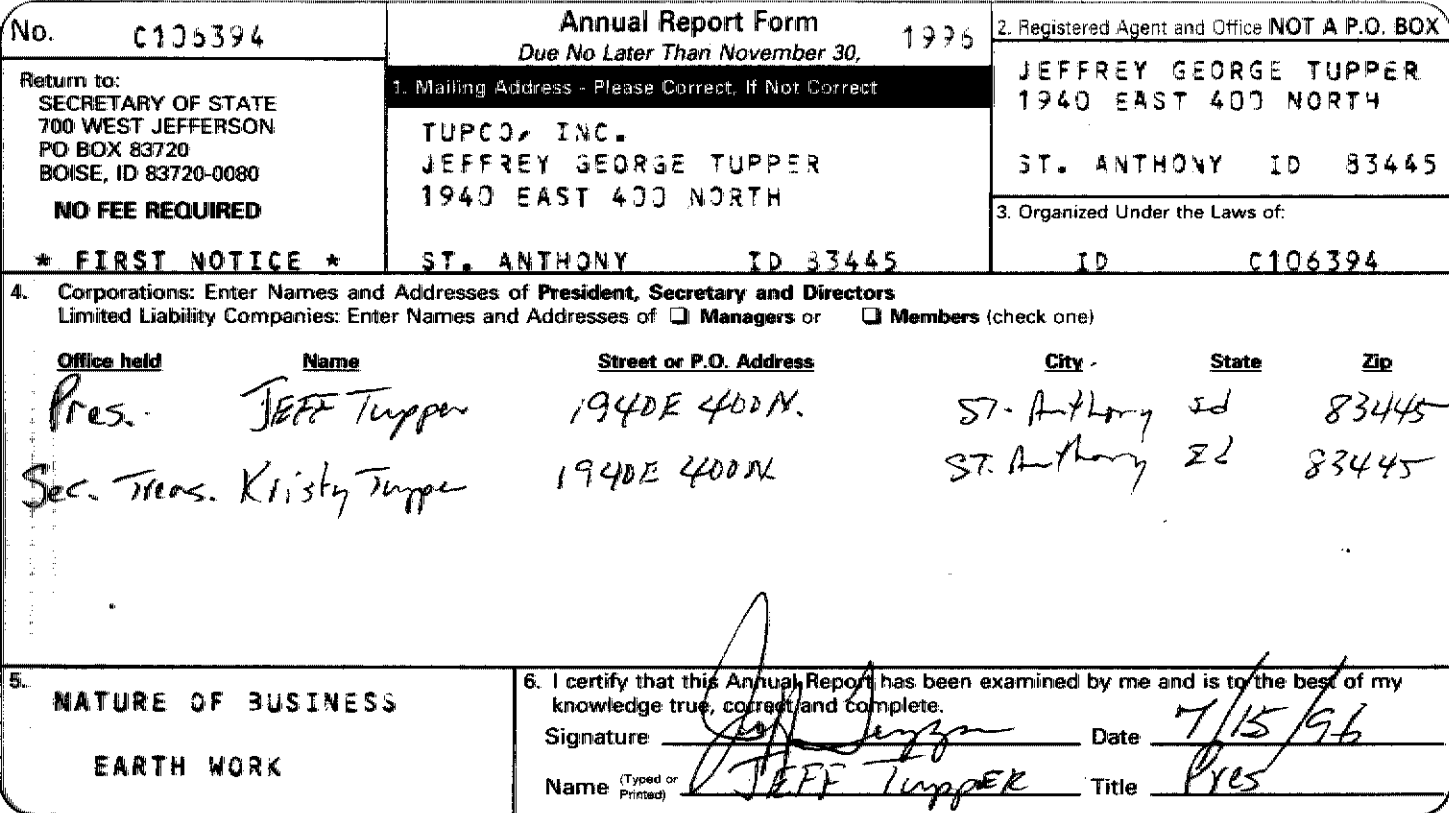 No. C106394
Annual Report Form 1996
Due No Later Than November 30,
Return to:
SECRETARY OF STATE
700 WEST JEFFERSON
PO BOX 83720
BOISE, ID 83720-0080
NO FEE REQUIRED
* FIRST NOTICE *
1. Mailing Address - Please Correct, If Not Correct
TUPCO, INC.
JEFFREY GEORGE TUPPER
1940 EAST 400 NORTH
ST. ANTHONY ID 83445
2. Registered Agent and Office NOT A P.O. BOX
JEFFREY GEORGE TUPPER
1940 EAST 400 NORTH
ST. ANTHONY ID 83445
3. Organized Under the Laws of:
ID C106394
4. Corporations: Enter Names and Addresses of President, Secretary and Directors
Limited Liability Companies: Enter Names and Addresses of ❑ Managers or ❑ Members (check one)
Office held Name Street or P.O. Address City State Zip
Pres. JEFF Tupper 1940E 400N. ST. Anthony Id 83445
Sec. Treas. Kristy Tupper 1940E 400N. ST. Anthony Id 83445
5. NATURE OF BUSINESS
EARTH WORK
6. I certify that this Annual Report has been examined by me and is to the best of my
knowledge true, correct and complete.
Signature Jeff Tupper Date 7/15/96
Name (Typed or Printed) JEFF TuppER Title Pres